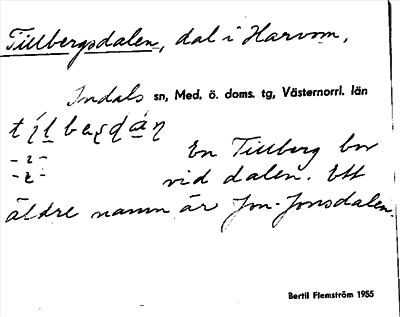 Tillbergsdalen, dal i Harvom,
Indals sn, Med. ö. doms. tg, Västernorrl. län
En Tillberg bor
vid dalen. Ett
äldre namn är Jon-Jonsdalen.
Bertil Flemström 1955